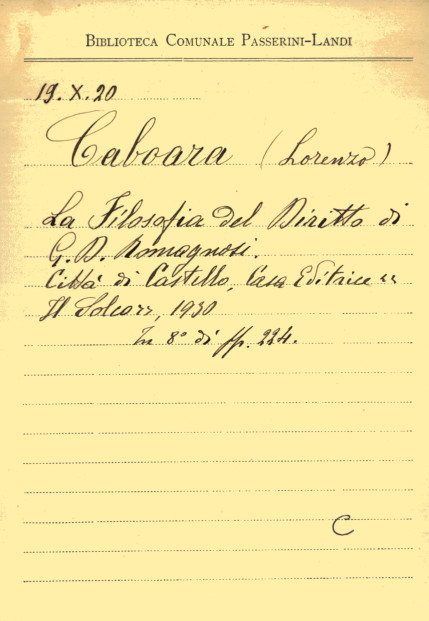 BIBLIOTECA COMUNALE PASSERINI-LANDI
19. X. 20
Caboara (Lorenzo)
La Filosofia del Diritto di
G. D. Romagnosi.
Città di Castello, Casa Editrice "
Il Solco", 1930
In 8° di pp. 224.
C